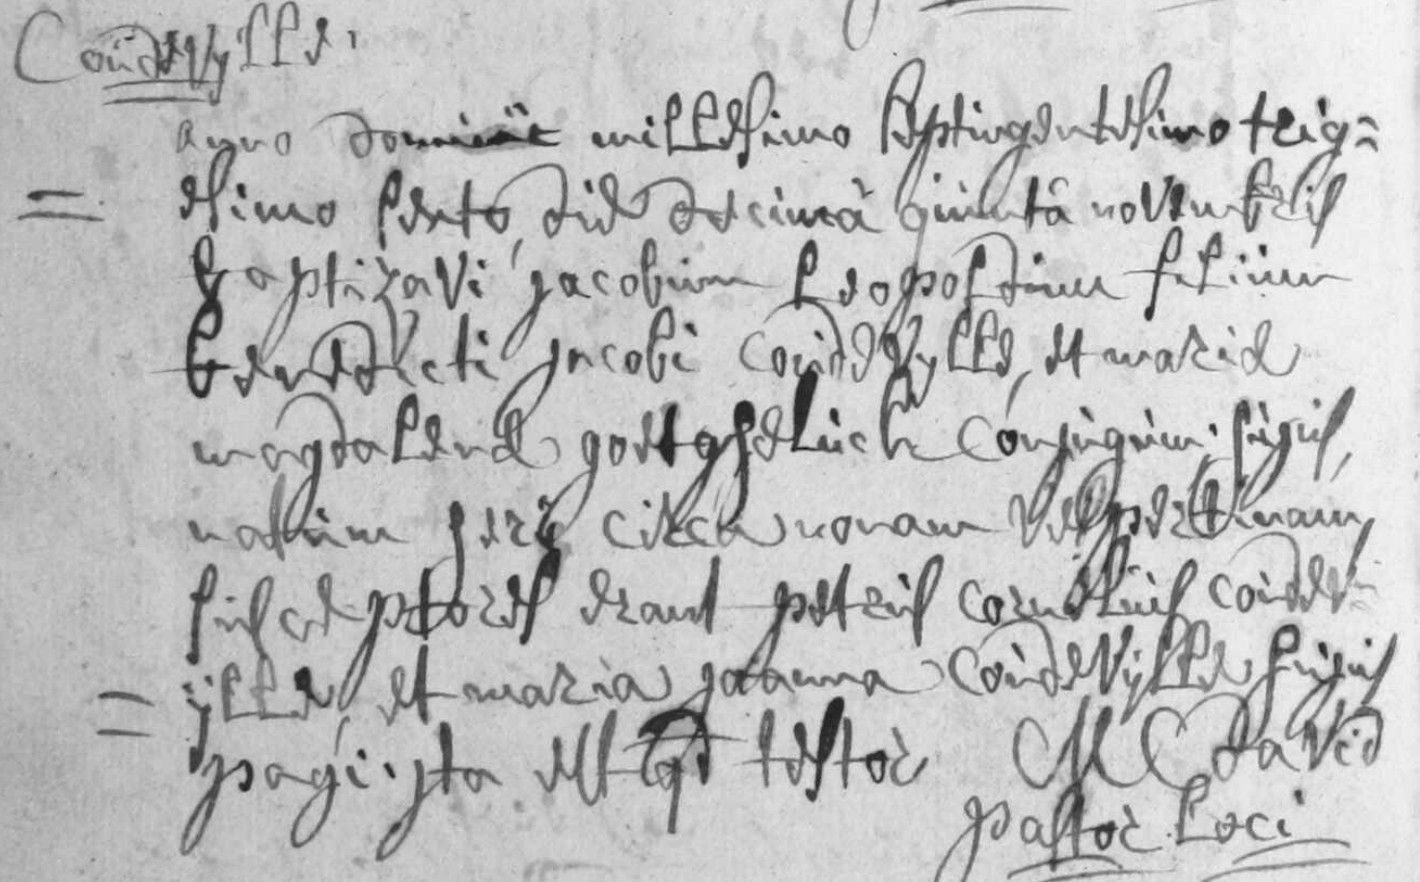 Coudevylle.
anno domini millesimo septingentesimo trig=
esimo sexto, die decimâ quintâ novembris
baptizavi jacobum Leopoldum filium
benedicti jacobi Coudevylle, et mariæ
magdalenæ gortgheluck Conjugum hujus,
natum heri circa nonam vespertinam,
susceptores erant petrus cornelius coudev=
ylle, et maria joanna Coudevylle hujus
pagi. jta est qd testor M C david
pastor Loci